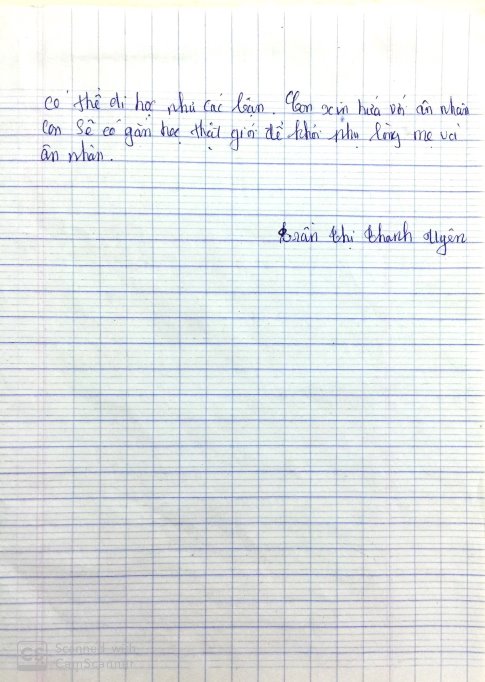 có thể đi học như các bạn. Con xin hứa với ân nhân
con sẽ cố gắn học thật giỏi để khỏi phụ lòng mẹ và
ân nhân.
Trần Thị Thanh Uyên
CS Scanned with
CamScanner